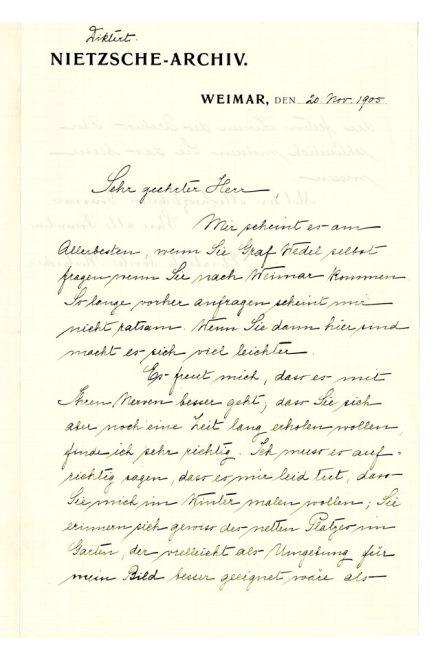 Diktirt.
NIETZSCHE-ARCHIV.
WEIMAR, DEN 20 Nov. 1905
Sehr geehrter Herr
Mir scheint es am
Allerbesten, wenn Sie Graf Wedel selbst
fragen wenn Sie nach Weimar kommen
So lange vorher anfragen scheint mir
nicht ratsam. Wenn Sie dann hier sind
macht es sich viel leichter.
Es freut mich, dass es mit
Ihren Nerven besser geht; dass Sie sich
aber noch eine Zeit lang erholen wollen,
finde ich sehr richtig. Ich muss es auf-
richtig sagen, dass es mir leid tut, dass
Sie mich im Winter malen wollen; Sie
erinnern sich gewiss des netten Platzes im
Garten, der vielleicht als Umgebung für
mein Bild besser geeignet wäre als